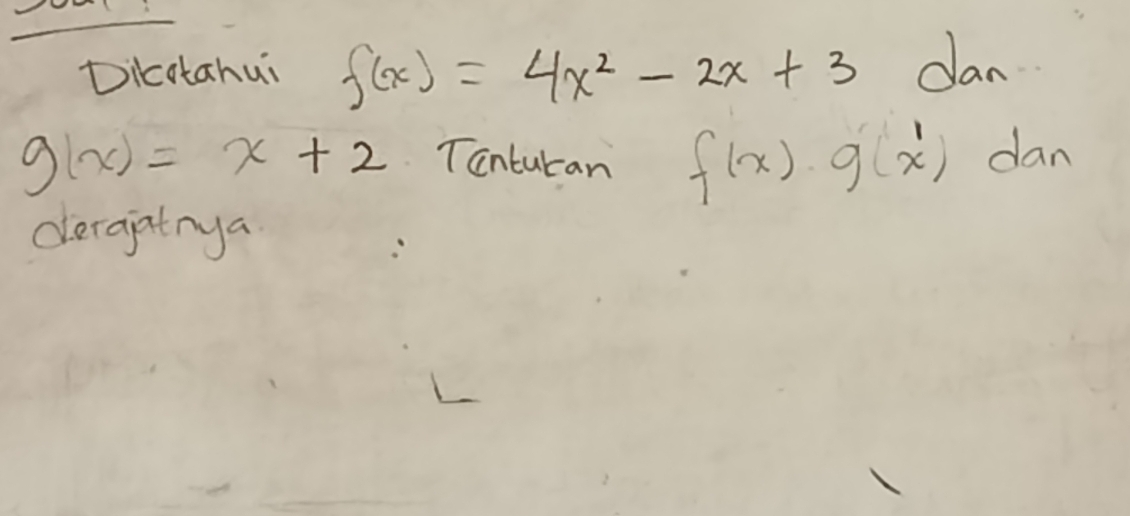 Diketahui f(x) = 4x² – 2x + 3 dan
g(x) = x + 2. Tentukan f(x). g(x) dan
derajatnya.